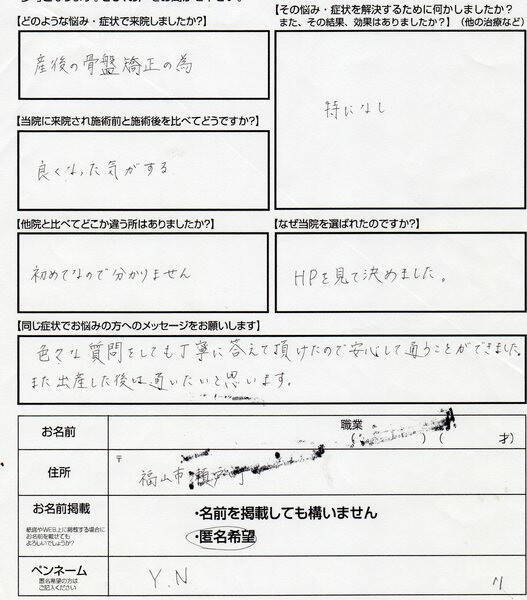 【どのような悩み・症状で来院しましたか?】
産後の骨盤矯正の為
【その悩み・症状を解決するために何かしましたか?
また、その結果、効果はありましたか?】(他の治療など)
特になし
【当院に来院され施術前と施術後を比べてどうですか?】
良くなった気がする
【他院と比べてどこか違う所はありましたか?】
初めてなので分かりません
【なぜ当院を選ばれたのですか?】
HPを見て決めました。
【同じ症状でお悩みの方へのメッセージをお願いします】
色々な質問をしても丁寧に答えて頂けたので安心して通うことができました。
また出産した後は通いたいと思います。
お名前
職業
( ) ( 才)
住所
〒
福山市
お名前掲載
紙面やWEB上に掲載する場合に
お名前を載せても
よろしいでしょうか?
・名前を掲載しても構いません
・匿名希望
ペンネーム
匿名希望の方は
ご記入ください
Y.N